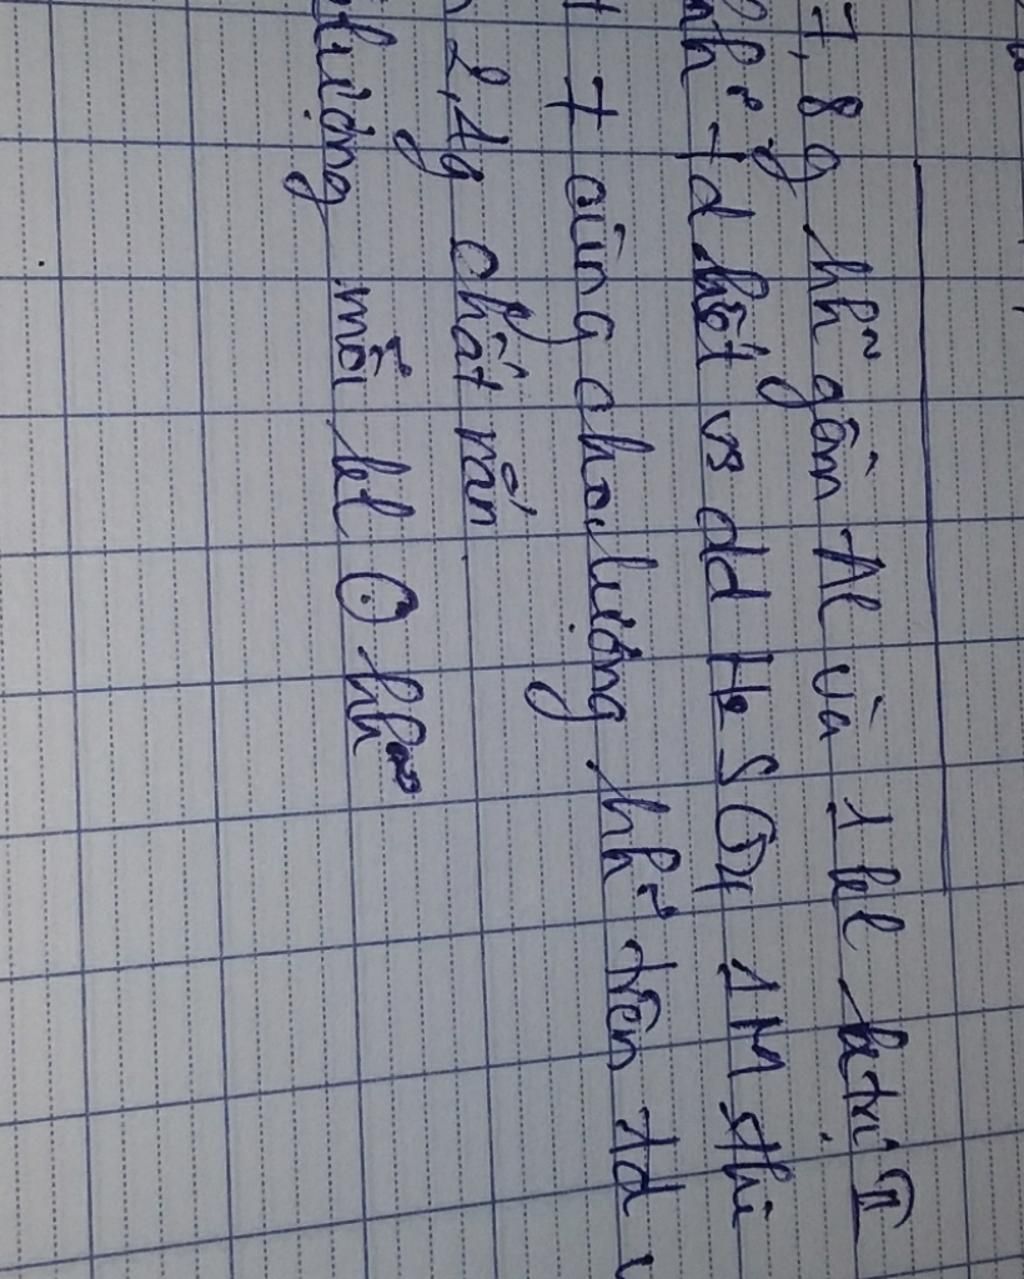 7,8 g hh gồm Al và 1 kl hoá trị II
hh td hết vs dd H2SO4 1M thì
+ cùng cho lượng hh trên td v
2,4g chất rắn
lượng mỗi kl O hh